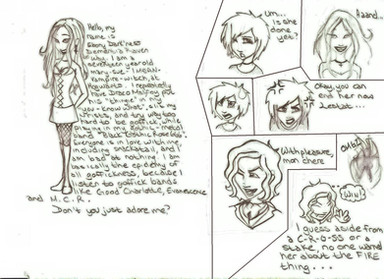 Hello, my
name is
Ebony Dark'ness
Dementia Raven
Way. I am a
seventeen year old
mary-sue- I MEAN-
vampire-witch, at
Hogwarts. I repeatedly
have Draco Malfoy put
his "thingie" in my
you-know-what, slit my
wrists, and try way too
hard to be goffick while
playing in my Gothic-metal
band "Bloody Gothic Rose 666".
Everyone is in love with me,
including Snaketail, and I
am bad at nothing. I am
basically the epidemy of
all goffickness, because I
listen to goffick bands
like Good Charlotte, Evanescence
and M.C.R.
Don't you just adore me?
Um...
Is she
done
yet?
Aaand...
Okay, you can
end her now
Lestat...
With pleasure,
mon chere
OMG!
Why!?
I guess aside from
a C-R-O-SS or a
stake, no one warned
her about the FIRE
thing...